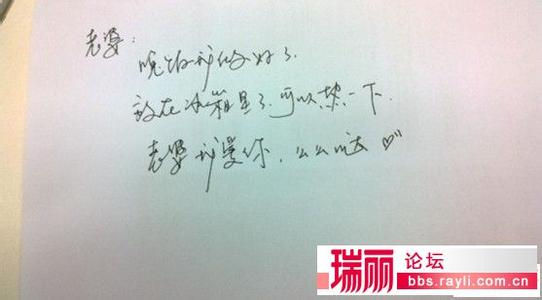 老婆:
晚饭我做好了.
放在冰箱里了.可以热一下.
老婆我爱你,么么哒♡
瑞丽 论坛
bbs.rayli.com.cn